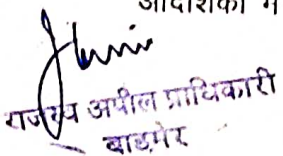 आदेशिका में
राजस्व अपील प्राधिकारी
बाड़मेर